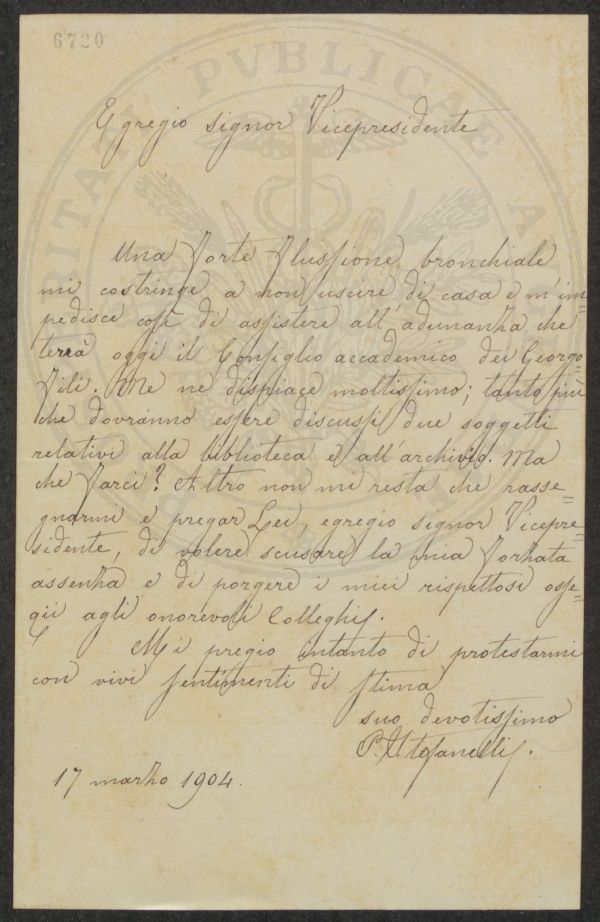 6720
PVBLICAE
Egregio signor Vicepresidente
Una forte flussione bronchiale
mi costringe a non uscire di casa e m'im=
pedisce così di assistere all'adunanza che
terrà oggi il Consiglio accademico dei Georgo=
fili. Me ne dispiace moltissimo; tanto più
che dovranno essere discussi due soggetti
relativi alla biblioteca e all'archivio. Ma
che farci? Altro non mi resta che rasse=
gnarmi e pregar Lei, egregio signor Vicepre=
sidente, di volere scusare la mia forzata
assenza e di porgere i miei rispettosi osse=
quii agli onorevoli Colleghi.
Mi pregio intanto di protestarmi
con vivi sentimenti di stima
suo devotissimo
P. Stefanelli.
17 marzo 1904.